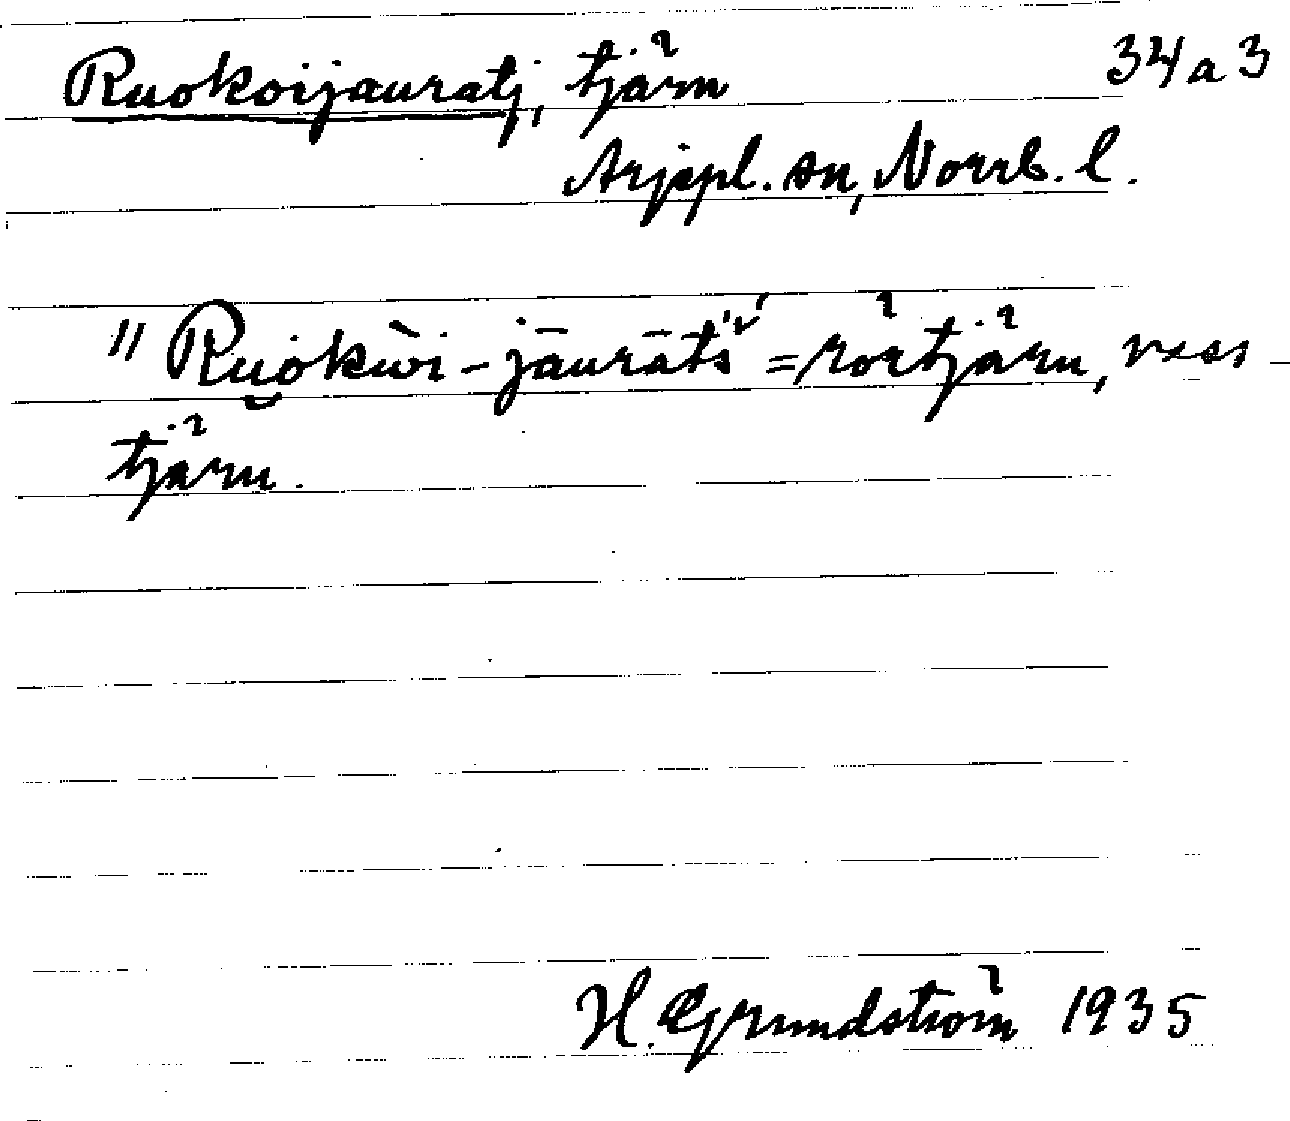 Ruokoijauratj, tjärn 34 a 3
Arjepl. sn, Norrb. l.
" Ruo̯kùi-jāurāt́š́ = rörtjärn, vass-
tjärn.
H. Grundström 1935